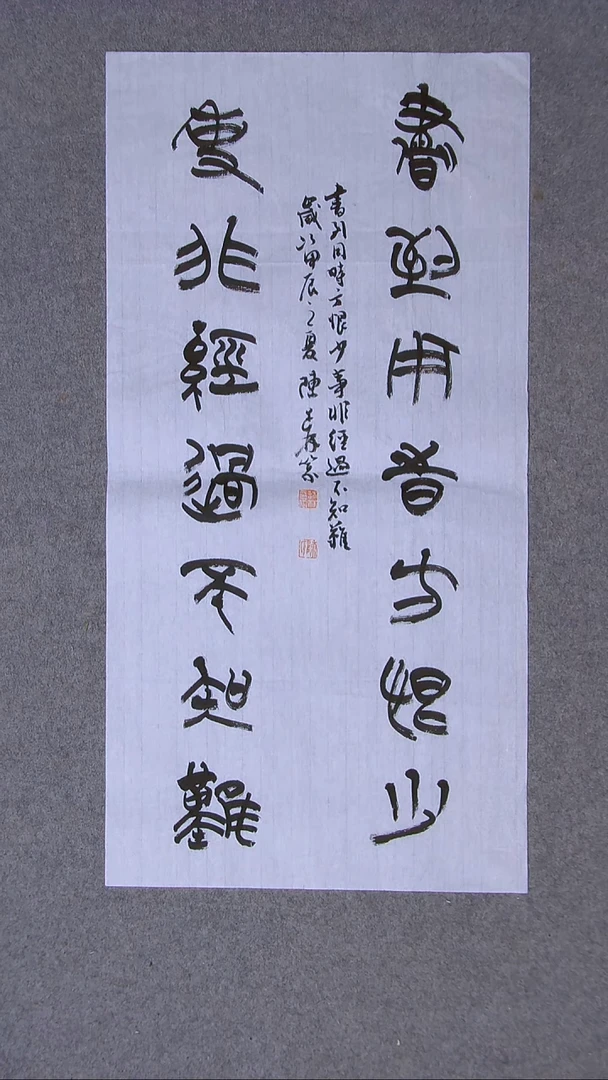 書到用時方恨少
書到用時方恨少事非經過不知難
歲次甲辰之夏 陸
事非經過不知難